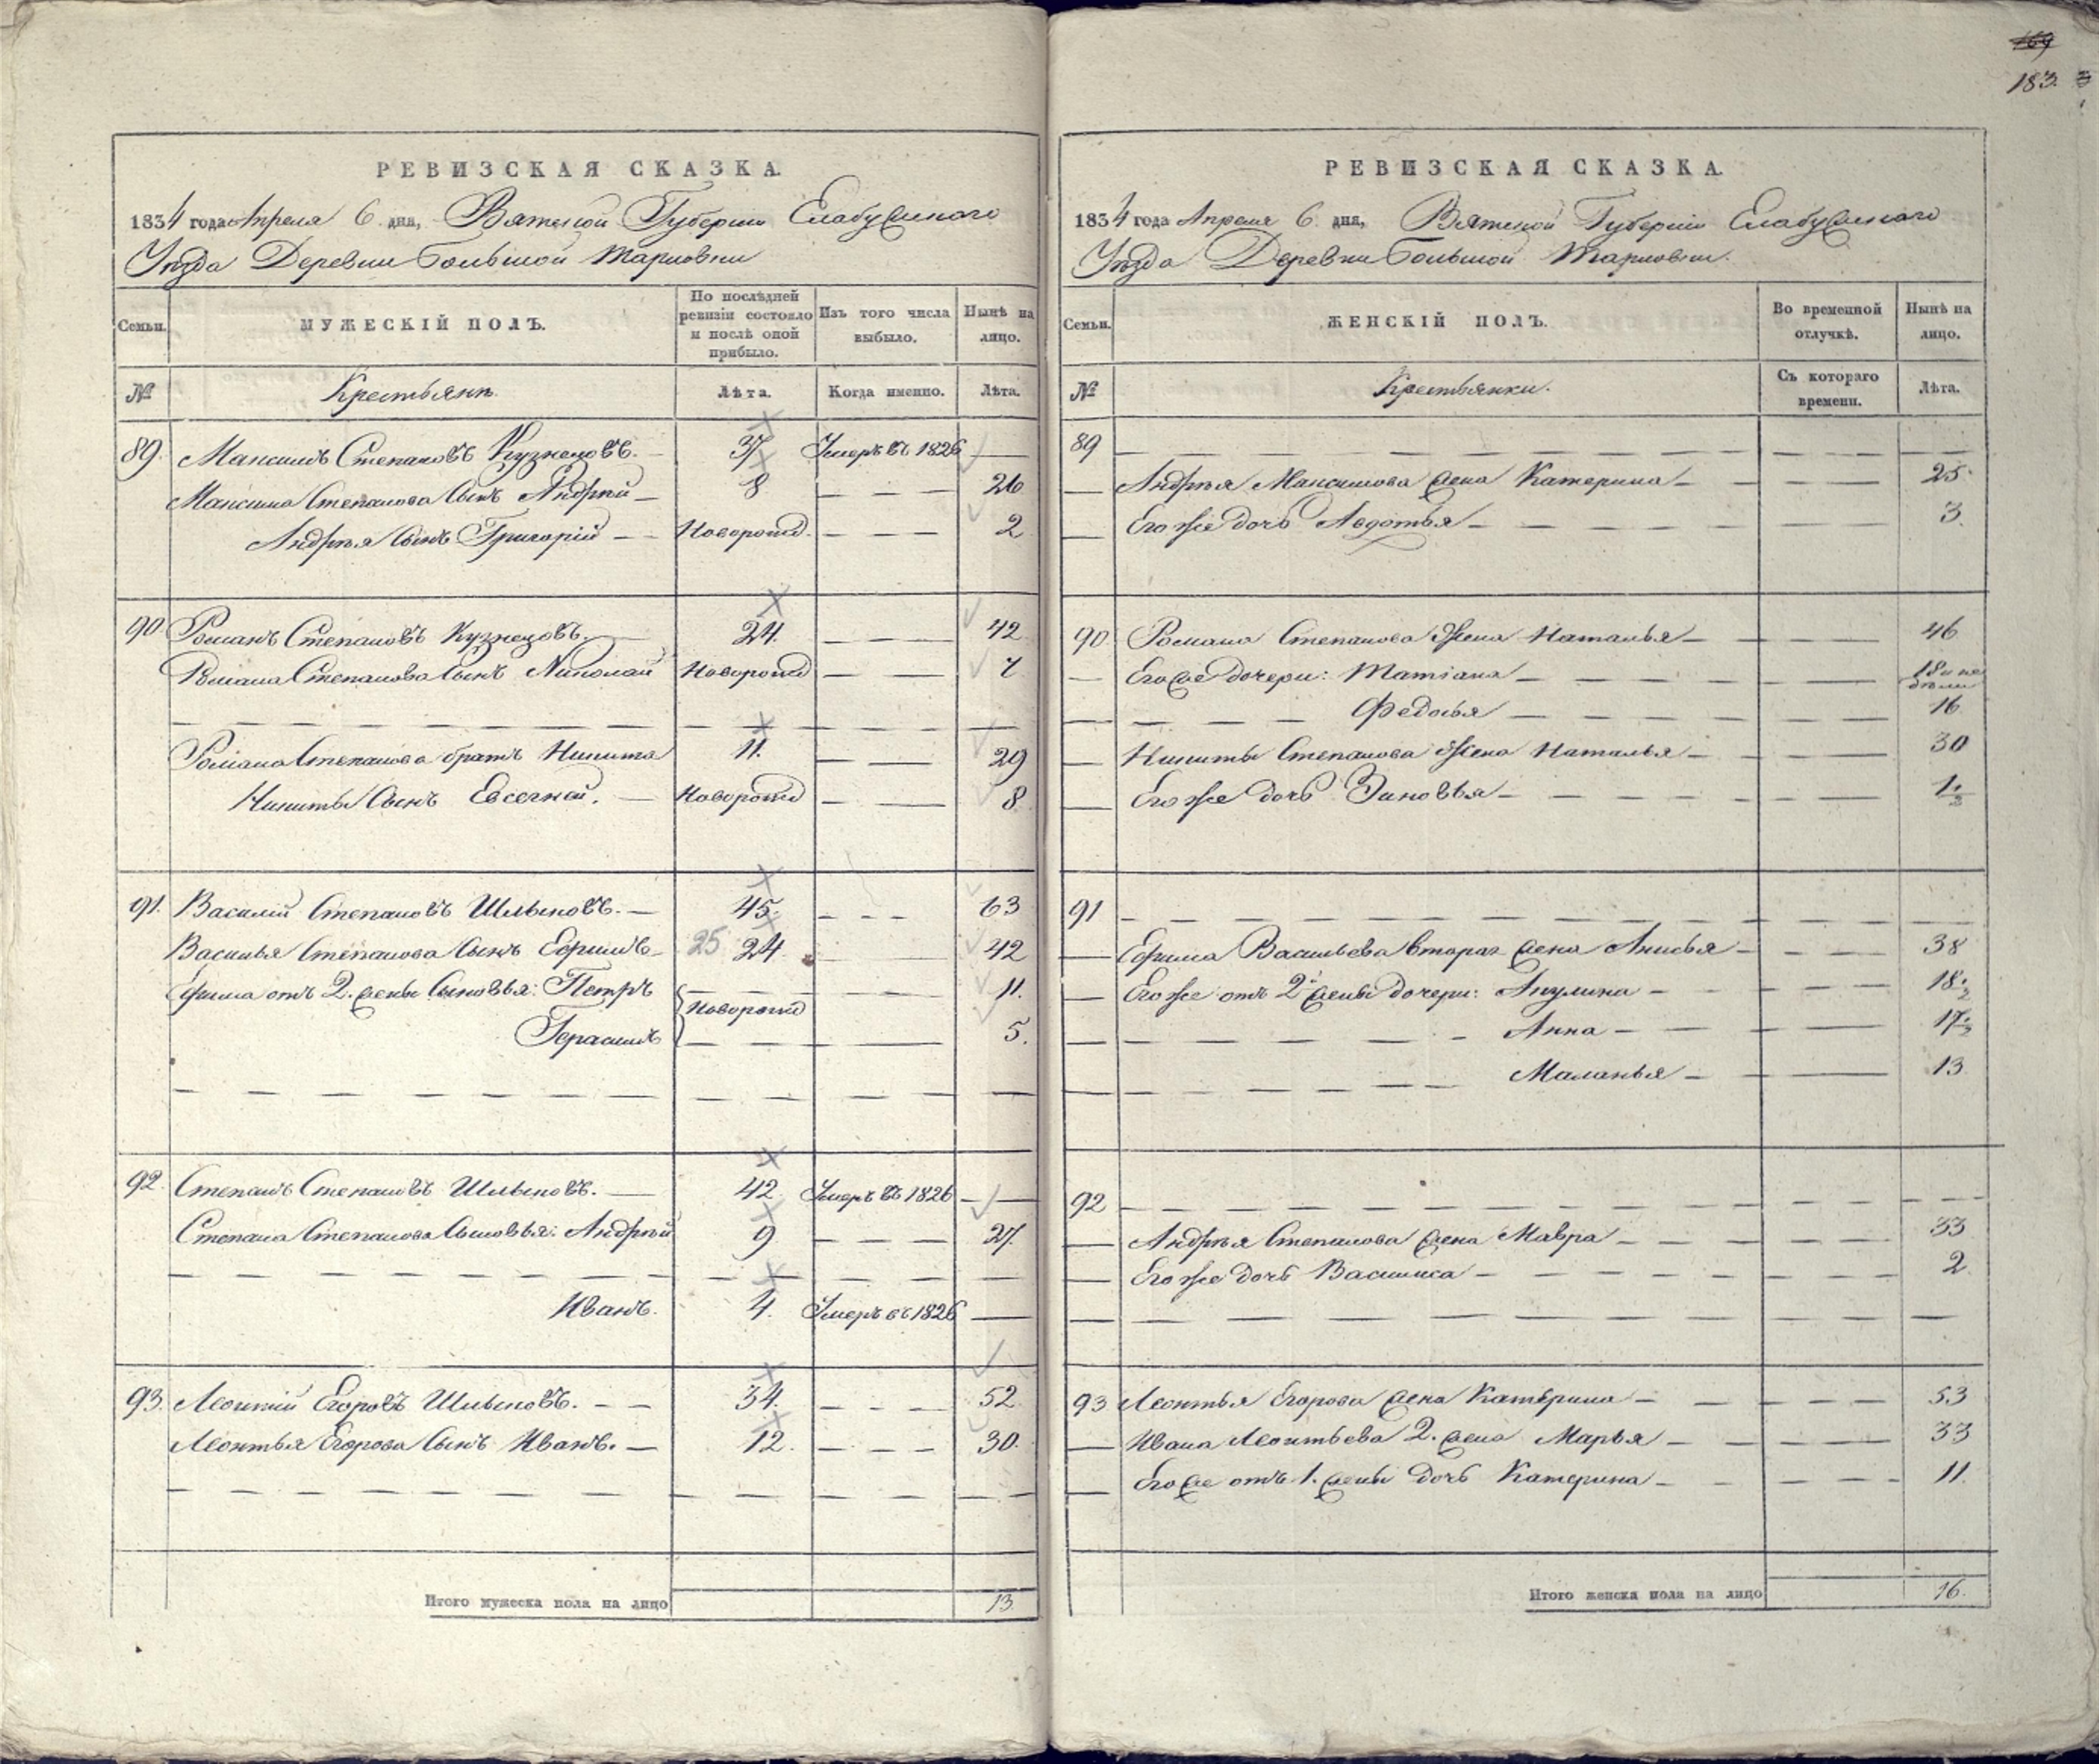 169
183.
РЕВИЗСКАЯ СКАЗКА.
1834 года Апреля 6 дня, Вятской Губернии Елабужскаго
Уѣзда Деревни Большой
МУЖЕСКІЙ ПОЛЪ.
Семьи.
По послѣдней ревизіи состояло и послѣ оной прибыло.
Изъ того числа выбыло.
Нынѣ на лицо.
№ Крестьяне. Лѣта. Когда именно. Лѣта.
89. Максимъ Степановъ Кузнецовъ. 37 Умеръ въ 1826
Максима Степанова Сынъ Андрѣй 8 26
Андрѣя Сынъ Григорій Новорожд. 2
90 Романъ Степановъ Кузнецовъ. 24. 42
Романа Степанова Сынъ Николай Новорожд 7
Романа Степанова братъ Никита 11. 29
Никиты Сынъ Евсегней. Новорожд 8
91. Василій Степановъ Шильновъ. 45. 63
Василья Степанова Сынъ Ефимъ 25 24. 42
Ефима отъ 2. жены Сыновья: Петръ Новорожд 11.
Герасимъ 5.
92. Степанъ Степановъ Шильновъ. 42. Умеръ въ 1826
Степана Степанова Сыновья: Андрѣй 9 27.
Иванъ. 4. Умеръ въ 1826
93. Леонтій Егоровъ Шильновъ. 34. 52
Леонтья Егорова Сынъ Иванъ. 12. 30.
Итого мужеска пола на лицо 13
РЕВИЗСКАЯ СКАЗКА.
1834 года Апреля 6 дня, Вятской Губерніи Елабужскаго
Уѣзда Деревни Большой
ЖЕНСКІЙ ПОЛЪ.
Семьи.
Во временной отлучкѣ.
Нынѣ на лицо.
№ Крестьянки. Съ котораго времени. Лѣта.
89
Андрѣя Максимова жена Катерина 25
Его же дочь Авдотья 3.
90. Романа Степанова Жена Наталья 46
Его же дочери: Матіана 18
Федосья 16
Никиты Степанова Жена Наталья 30
Его же дочь Зиновья 1 1/2
91
Ефима Васильева вторая жена Анисья 38
Его же отъ 2й жены дочери: Акулина 18 1/2
Анна 17 1/2
Маланья 13
92
Андрѣя Степанова жена Мавра 33
Его же дочь Василиса 2.
93 Леонтья Егорова жена Катерина 53
Ивана Леонтьева 2. жена Марья 33
Его же отъ 1. жены дочь Катерина 11.
Итого женска пола на лицо 16.